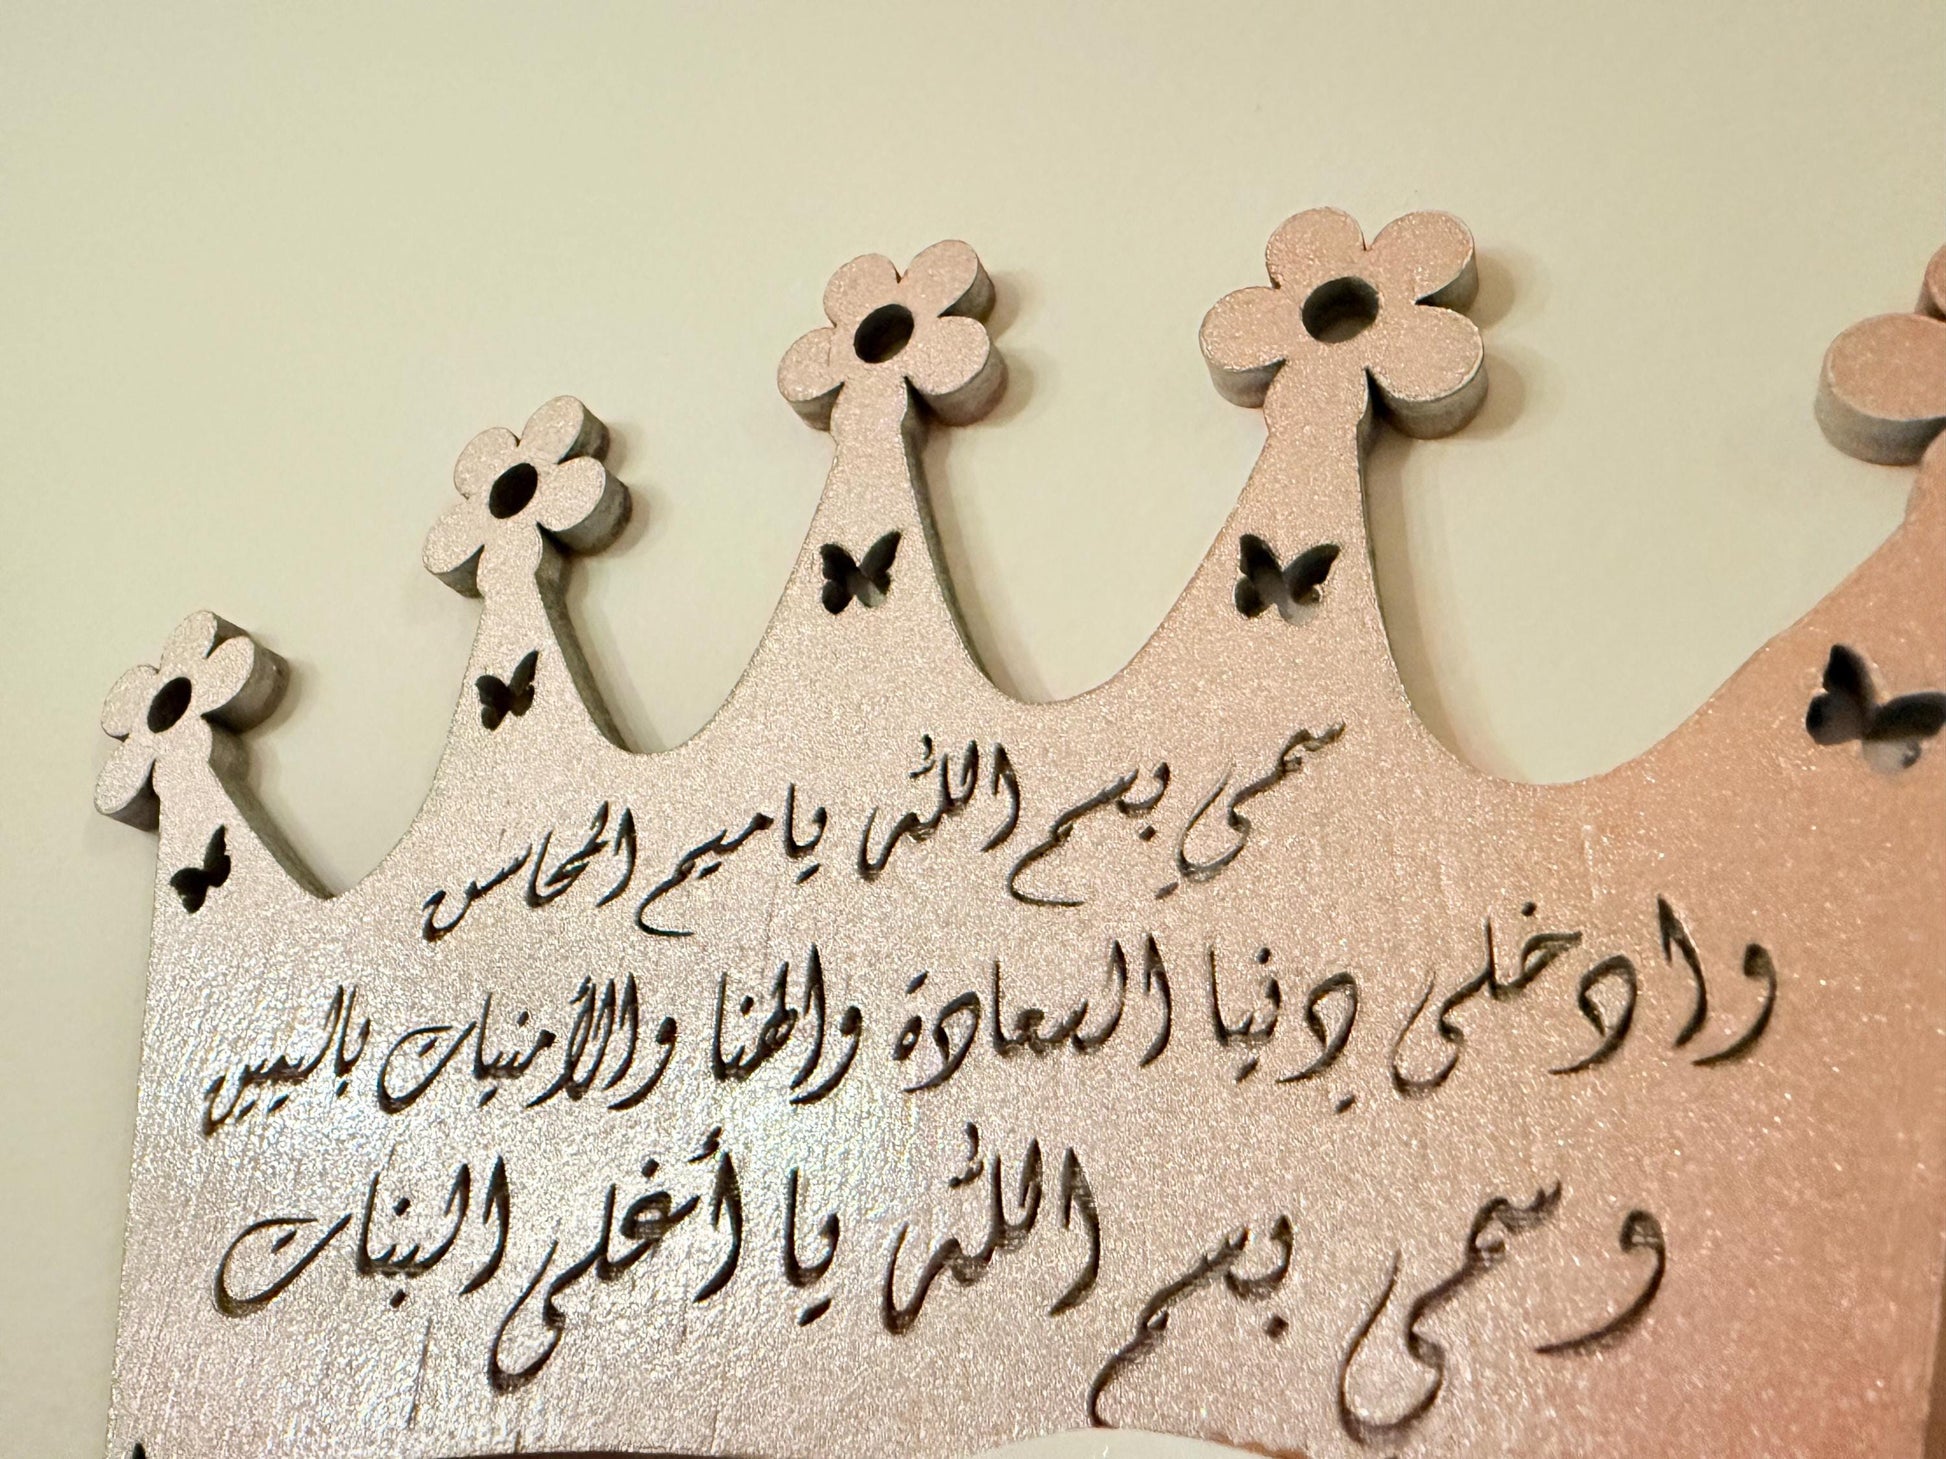 سمي بسم الله يا ميم المحاسن
وادخلي دنيا السعادة والهنا والأمنيات باليمين
وسمي بسم الله يا أغلى البنات